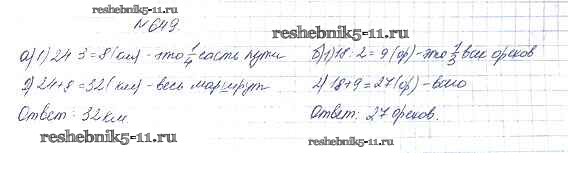 №649
reshebnik5-11.ru
а) 1) 24 3 = 8 (км) - это 1/4 часть пути
2) 24+8=32(км) - весь маршрут
Ответ: 32 км.
reshebnik5-11.ru
б) 1) 18 : 2 = 9 (ор) - это 1/3 всех орехов
2) 18+9=27(ор) - всего
Ответ: 27 орехов.
reshebnik5-11.ru